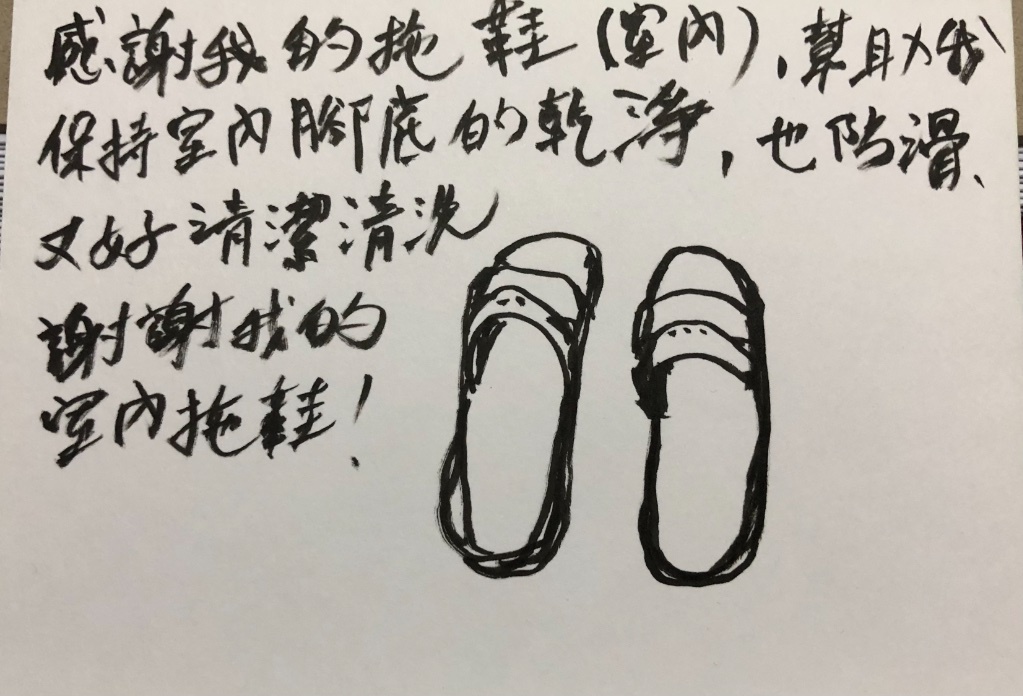 感謝我的拖鞋(室內),幫助我
保持室內腳底的乾淨,也防滑、
又好清潔清洗
謝謝我的
室內拖鞋!